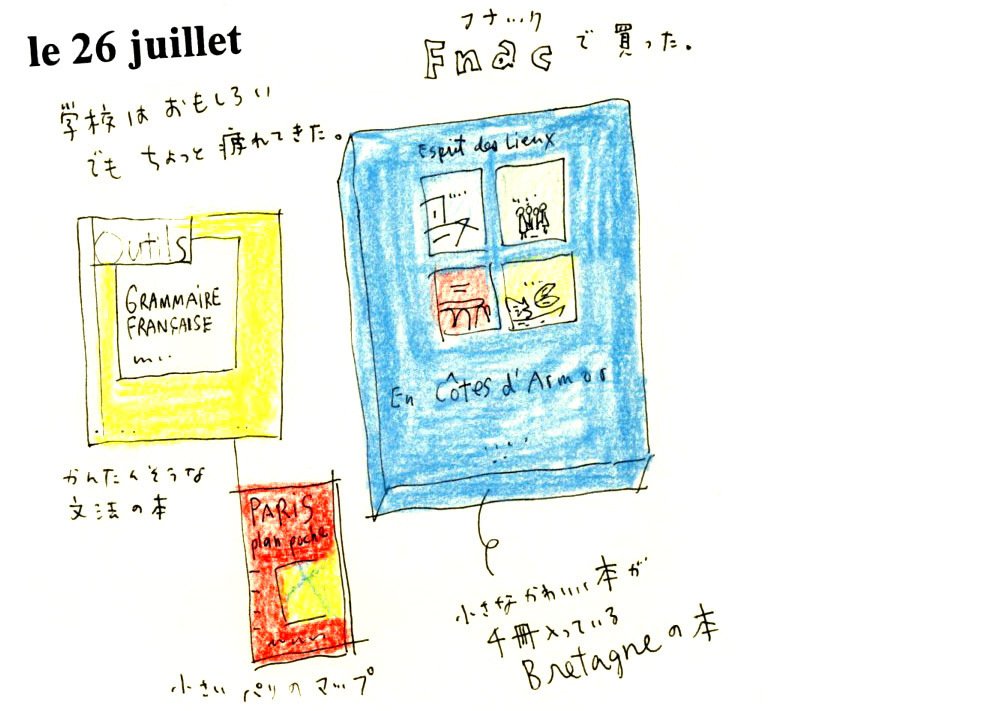 le 26 juillet
フナック
Fnac で買った。
学校はおもしろい
でもちょっと疲れてきた。
Esprit des Lieux
En Côtes d'Armor
Outils
GRAMMAIRE
FRANÇAISE
かんたんそうな
文法の本
PARIS
plan poche
小さいパリのマップ
小さなかわいい本が
4冊入っている
Bretagneの本